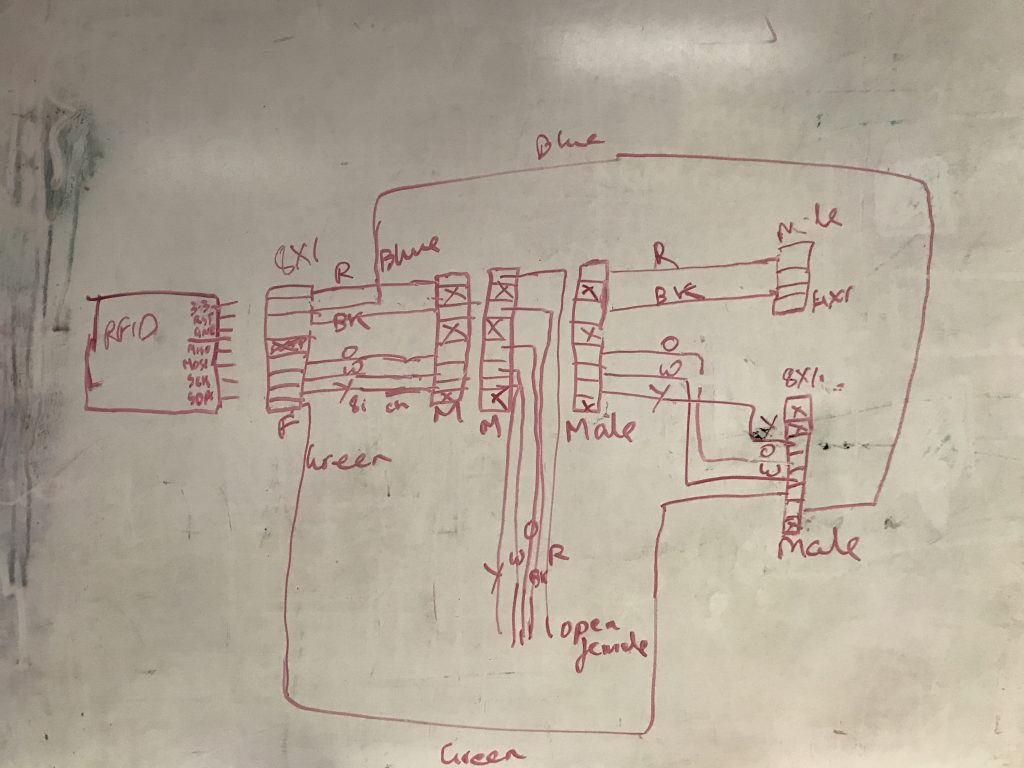 Blue
8X1
R
Blue
BK
O
W
Y
8i ch
F
M
Green
RFID
3.3
RST
GND
MISO
MOSI
SCK
SDA
M
R
BK
O
W
Y
Male
8X1
Y
O
W
Male
O
W
R
BK
Y
open
female
Green